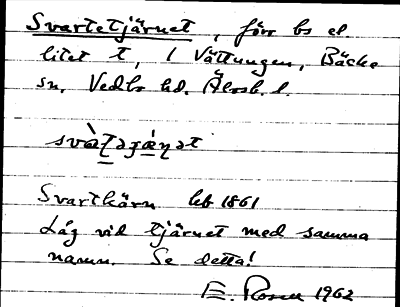 Svartetjärnet, förr bs el
litet t, l Vättungen, Bäcke
sn, Vedbo hd. Älvsb. l.
Svartkärn hb 1861
Låg vid tjärnet med samma
namn. Se detta!
E. Rosen 1962